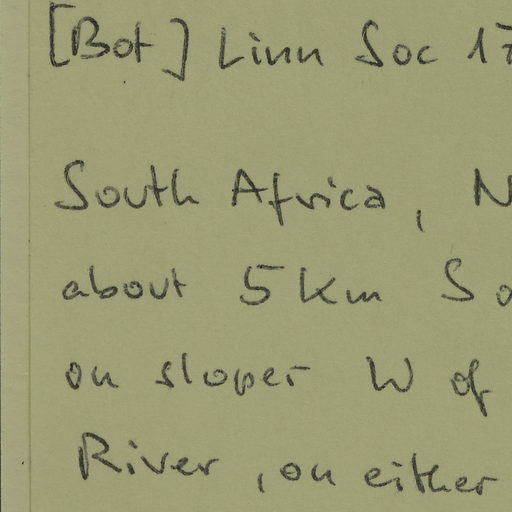 [Bot] Linn Soc 17
South Africa, N
about 5 km S o
on slopes W of
River, on either